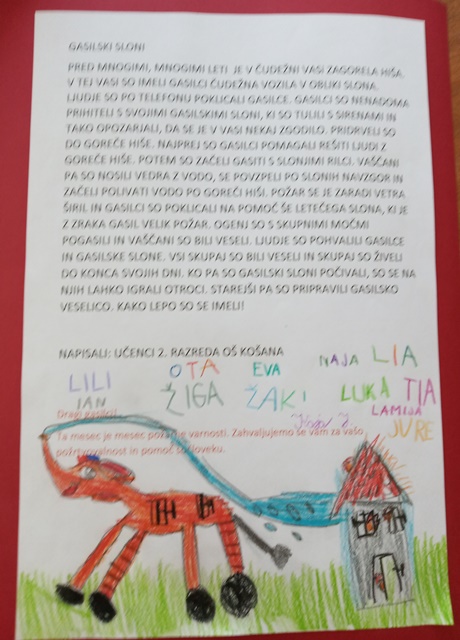 GASILSKI SLONI
PRED MNOGIMI, MNOGIMI LETI JE V ČUDEŽNI VASI ZAGORELA HIŠA.
V TEJ VASI SO IMELI GASILCI ČUDEŽNA VOZILA V OBLIKI SLONA.
LJUDJE SO PO TELEFONU POKLICALI GASILCE. GASILCI SO NENADOMA
PRIHITELI S SVOJIMI GASILSKIMI SLONI, KI SO TULILI S SIRENAMI IN
TAKO OPOZARJALI, DA SE JE V VASI NEKAJ ZGODILO. PRIDRVELI SO
DO GOREČE HIŠE. NAJPREJ SO GASILCI POMAGALI REŠITI LJUDI Z
GOREČE HIŠE. POTEM SO ZAČELI GASITI S SLONJIMI RILCI. VAŠČANI
PA SO NOSILI VEDRA Z VODO, SE POVZPELI PO SLONIH NAVZGOR IN
ZAČELI POLIVATI VODO PO GOREČI HIŠI. POŽAR SE JE ZARADI VETRA
ŠIRIL IN GASILCI SO POKLICALI NA POMOČ ŠE LETEČEGA SLONA, KI JE
Z ZRAKA GASIL VELIK POŽAR. OGENJ SO S SKUPNIMI MOČMI
POGASILI IN VAŠČANI SO BILI VESELI. LJUDJE SO POHVALILI GASILCE
IN GASILSKE SLONE. VSI SKUPAJ SO BILI VESELI IN SKUPAJ SO ŽIVELI
DO KONCA SVOJIH DNI. KO PA SO GASILSKI SLONI POČIVALI, SO SE NA
NJIH LAHKO IGRALI OTROCI. STAREJŠI PA SO PRIPRAVILI GASILSKO
VESELICO. KAKO LEPO SO SE IMELI!
NAPISALI: UČENCI 2. RAZREDA OŠ KOŠANA
LILI OTA EVA NAJA LIA
JAN ŽIGA ŽAKI LUKA TIA
LAMIJA
JURE
Dragi gasilci!
Ta mesec je mesec požarne varnosti. Zahvaljujemo se vam za vašo
požrtvovalnost in pomoč sočloveku.